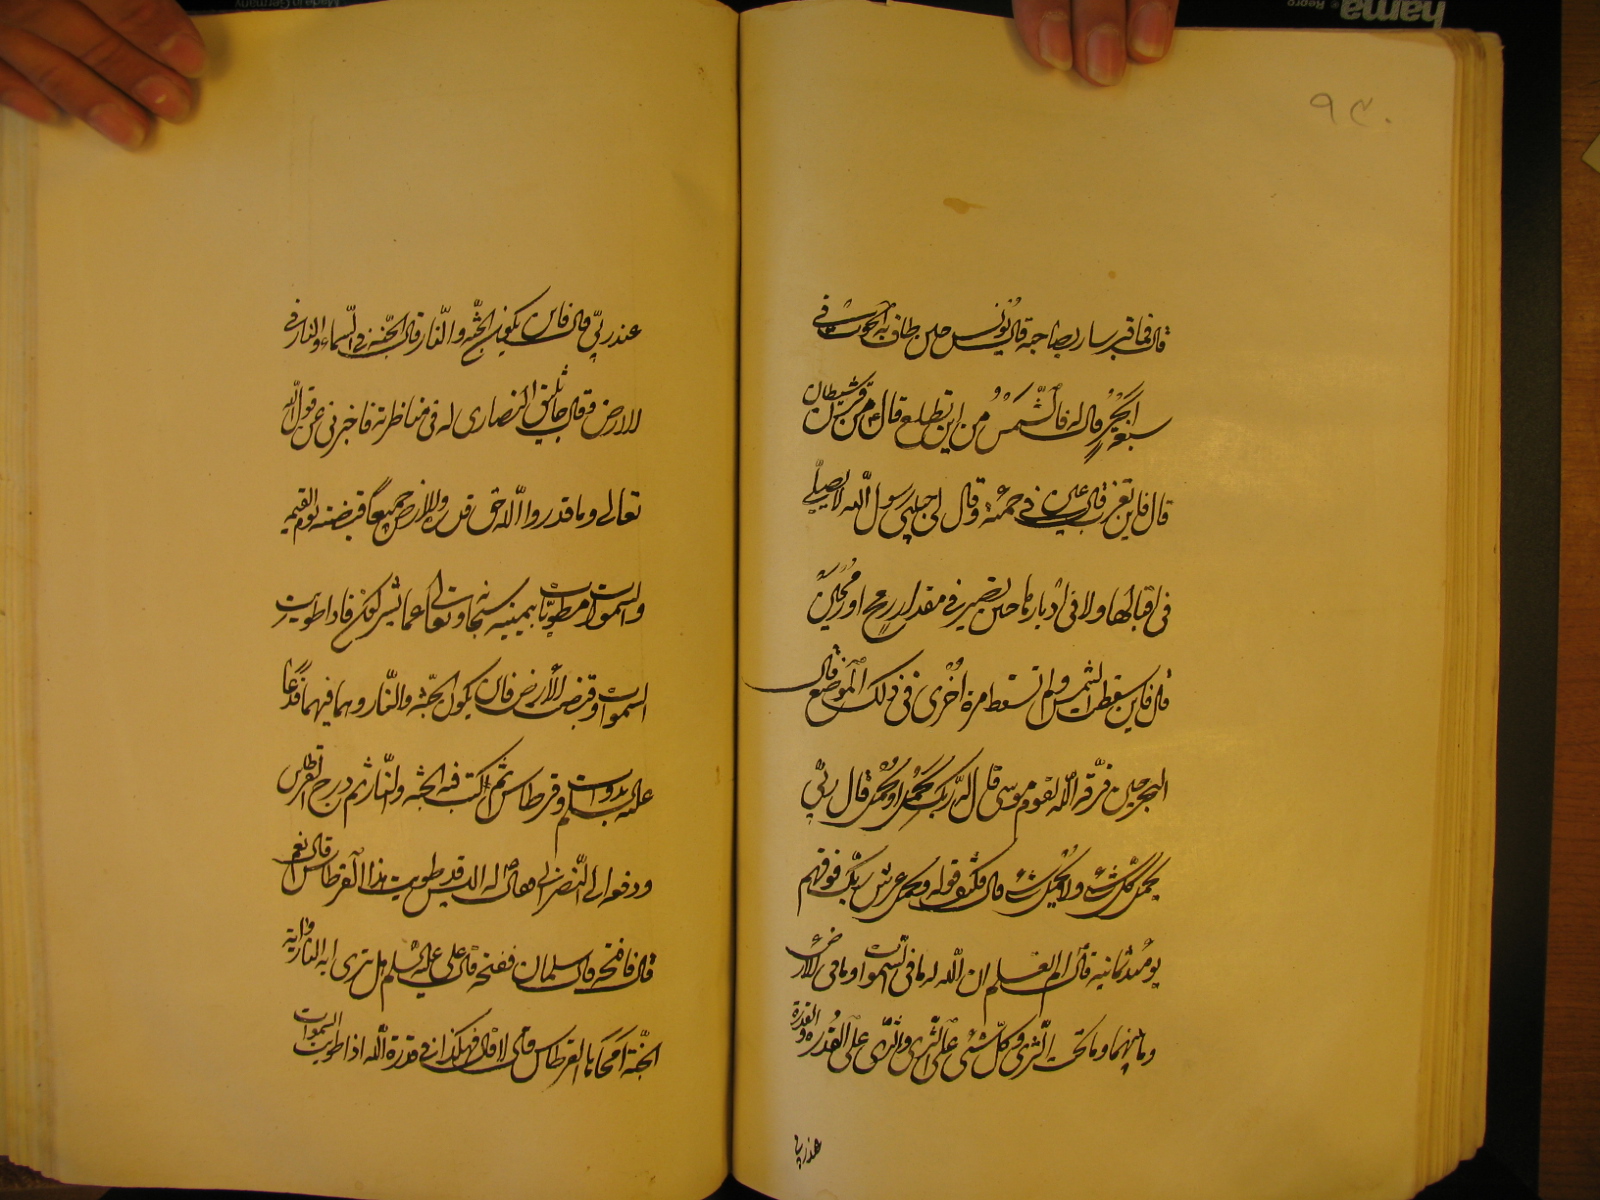 ۹۴۰
قال فما قبر سار بصاحبه قال يونس حين طاف به الحوت في
سبعة ابحر قال له فالشمس من اين تطلع قال من قرني شيطان
قال فاين تغرب قال في عين حمئة وقال لي حبيبي رسول الله لا يصلي
في اقبالها ولا في ادبارها حين تصير في مقدار رمح او رمحين
قال فاين سقطت الشمس ولم تسقط مرة اخرى في ذلك الموضع قال
البحر حين فرقه الله لقوم موسى قال له ربك يحمل او يحمل قال ربي
يحمل كل شيء ولا يحمله شيء قال فكيف قوله ويحمل عرش ربك فوقهم
يومئذ ثمانية قال الم تعلم ان الله له ما في السموات وما في الارض
وما بينهما وما تحت الثرى وكل شيء على الثرى والثرى على القدرة والقدرة
عند ربي
عند ربي قال فاين يكون الجنة والنار قال الجنة في السماء والنار في
الارض وقال جاثليق النصارى له في مناظرته فاخبرني عن قول الله
تعالى وما قدروا الله حق قدره والارض جميعا قبضته يوم القيمة
والسموات مطويات بيمينه سبحانه وتعالى عما يشركون فاذا طويت
السموات وقبض الارض فاين يكون الجنة والنار وهما فيهما فدعا
عليه السلم بدوات وقرطاس ثم كتب فيه الجنة والنار ثم درج القرطاس
ودفعه الى النصراني وقال له اليس قد طويت هذا القرطاس قال نعم
قال فافتحه قال سلمان ففتحه قال علي عليه السلم هل ترى اية النار واية
الجنة امحاها القرطاس قال لا قال فهكذا في قدرة الله اذا طويت السموات
hama
Made in Germany